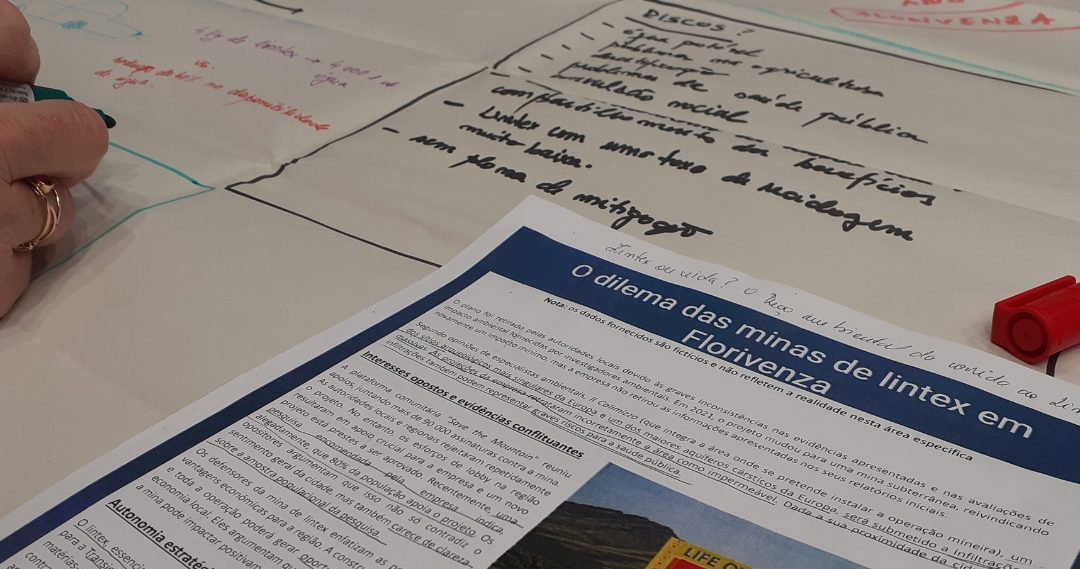 FLORIVENZA
4 kg de lintex → 4.000 l de
água
vs
redução de 40% na disponibilidade
de água.
RISCOS?
- água potável
- problemas na agricultura
- desertificação
- problemas de saúde pública
- inclusão social
compartilhamento dos benefícios
- Lintex com uma taxa de reciclagem
muito baixa.
- sem plano de mitigação
Lintex ou vida? O
O dilema das minas de lintex em
Florivenza
Nota: os dados fornecidos são fictícios e não refletem a realidade nesta área específica
O plano foi retirado pelas autoridades locais devido às graves inconsistências nas evidências apresentadas e nas avaliações de
impacto ambiental fornecidos por investigadores ambientais. Em 2021, o projeto mudou para uma mina subterrânea, reivindicando
novamente um impacto mínimo, mas a empresa não retirou as informações apresentadas nos seus relatórios iniciais.
Segundo opiniões de especialistas ambientais, // Cosmizro (que integra a área onde se pretende instalar a operação mineira), um
dos sítios arqueológicos mais singulares da Europa e um dos maiores aquíferos cársticos da Europa, será submetido a infiltrações
As projeções da empresa trataram incorretamente a área como impermeável. Dada a sua proximidade da cid
infiltrações também podem representar graves riscos para a saúde pública.
Interesses opostos e evidências conflituantes
A plataforma comunitária "Save the Mountain" reuniu
apoios, juntando mais de 30.000 assinaturas contra a mina.
As autoridades locais e regionais rejeitaram repetidamente
o projeto. No entanto, os esforços de lobby na região
resultaram em apoio crucial para a empresa e um novo
projeto está prestes a ser aprovado. Recentemente, uma
pesquisa encomendada pela empresa indica,
alegadamente, que 80% da população apoia o projeto. Os
opositores argumentam que isso não só contradiz o
sentimento geral da cidade, mas também carece de clareza
sobre a amostra populacional da pesquisa.
Os defensores da mina de lintex enfatizam as
vantagens económicas para a região. A constru
e toda a operação poderá gerar oport
economia local. Eles argumentam qu
a mina pode impactar positivam
Autonomia estraté
O lintex, essenc
para a Trans
matérias
contr
LIFE O